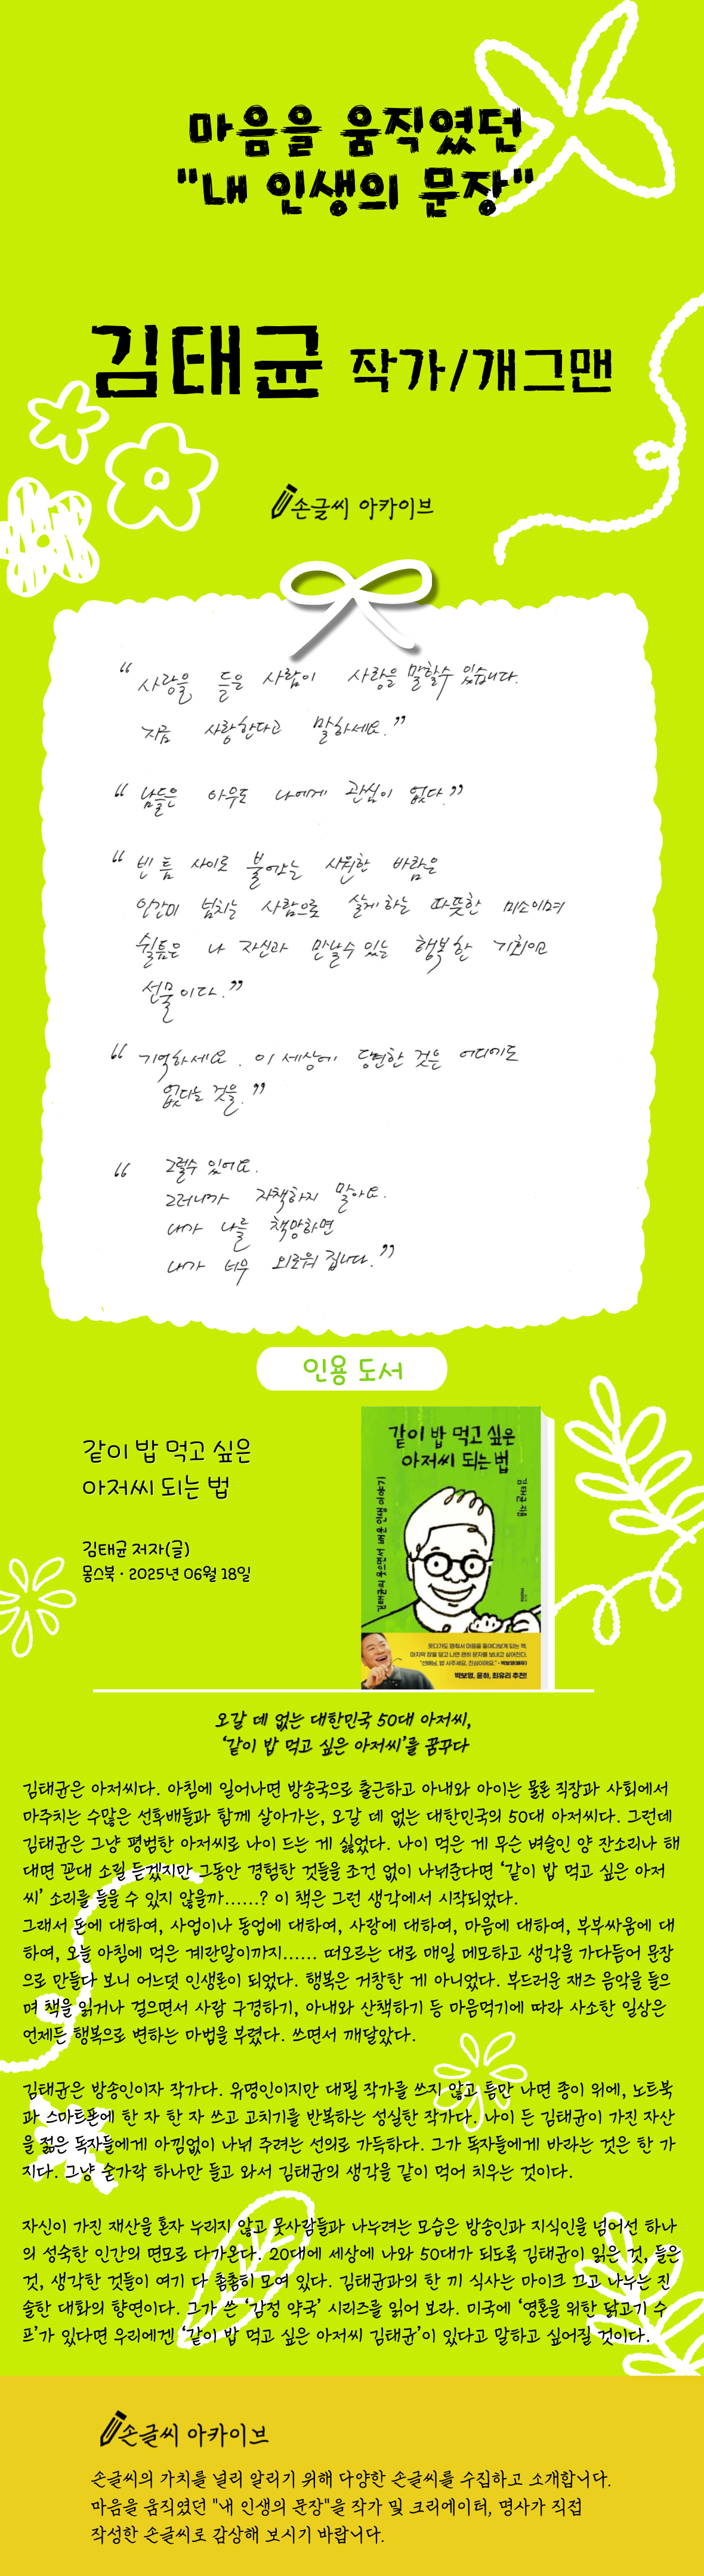 마음을 움직였던
"내 인생의 문장"
김태균 작가/개그맨
손글씨 아카이브
“ 사랑을 들은 사람이 사랑을 말할수 있습니다.
지금 사랑한다고 말하세요.”
“ 남들은 아무도 나에게 관심이 없다.”
“ 빈 틈 사이로 불어오는 시원한 바람은
인간미 넘치는 사람으로 살게 하는 따뜻한 미소이며
쉴틈은 나 자신과 만날수 있는 행복한 기회이고
선물이다.”
“ 기억하세요. 이 세상에 당연한 것은 어디에도
없다는 것을.”
“ 그럴수 있어요.
그러니까 자책하지 말아요.
내가 나를 책망하면
내가 너무 외로워 집니다.”
인용 도서
같이 밥 먹고 싶은
아저씨 되는 법
김태균 저자(글)
몽스북 · 2025년 06월 18일
같이 밥 먹고 싶은
아저씨 되는 법
김태균 지음
김태균의 웃으면서 배운 인생 이야기
웃다가도 멈춰서 마음을 들여다보게 되는 책.
마지막 장을 덮고 나면 괜히 문자를 보내고 싶어진다.
“선배님, 밥 사주세요. 진심이에요.” - 박보영(배우)
박보영, 윤하, 최유리 추천!!
오갈 데 없는 대한민국 50대 아저씨,
‘같이 밥 먹고 싶은 아저씨’를 꿈꾸다
김태균은 아저씨다. 아침에 일어나면 방송국으로 출근하고 아내와 아이는 물론 직장과 사회에서
마주치는 수많은 선후배들과 함께 살아가는, 오갈 데 없는 대한민국의 50대 아저씨다. 그런데
김태균은 그냥 평범한 아저씨로 나이 드는 게 싫었다. 나이 먹은 게 무슨 벼슬인 양 잔소리나 해
대면 꼰대 소릴 듣겠지만 그동안 경험한 것들을 조건 없이 나눠준다면 ‘같이 밥 먹고 싶은 아저
씨’ 소리를 들을 수 있지 않을까……? 이 책은 그런 생각에서 시작되었다.
그래서 돈에 대하여, 사업이나 동업에 대하여, 사랑에 대하여, 마음에 대하여, 부부싸움에 대
하여, 오늘 아침에 먹은 계란말이까지…… 떠오르는 대로 매일 메모하고 생각을 가다듬어 문장
으로 만들다 보니 어느덧 인생론이 되었다. 행복은 거창한 게 아니었다. 부드러운 재즈 음악을 들으
며 책을 읽거나 걸으면서 사람 구경하기, 아내와 산책하기 등 마음먹기에 따라 사소한 일상은
언제든 행복으로 변하는 마법을 부렸다. 쓰면서 깨달았다.
김태균은 방송인이자 작가다. 유명인이지만 대필 작가를 쓰지 않고 틈만 나면 종이 위에, 노트북
과 스마트폰에 한 자 한 자 쓰고 고치기를 반복하는 성실한 작가다. 나이 든 김태균이 가진 자산
을 젊은 독자들에게 아낌없이 나눠 주려는 선의로 가득하다. 그가 독자들에게 바라는 것은 한 가
지다. 그냥 숟가락 하나만 들고 와서 김태균의 생각을 같이 먹어 치우는 것이다.
자신이 가진 재산을 혼자 누리지 않고 뭇사람들과 나누려는 모습은 방송인과 지식인을 넘어선 하나
의 성숙한 인간의 면모로 다가온다. 20대에 세상에 나와 50대가 되도록 김태균이 읽은 것, 들은
것, 생각한 것들이 여기 다 촘촘히 모여 있다. 김태균과의 한 끼 식사는 마이크 끄고 나누는 진
솔한 대화의 향연이다. 그가 쓴 ‘감정 약국’ 시리즈를 읽어 보라. 미국에 ‘영혼을 위한 닭고기 수
프’가 있다면 우리에겐 ‘같이 밥 먹고 싶은 아저씨 김태균’이 있다고 말하고 싶어질 것이다.
손글씨 아카이브
손글씨의 가치를 널리 알리기 위해 다양한 손글씨를 수집하고 소개합니다.
마음을 움직였던 "내 인생의 문장"을 작가 및 크리에이터, 명사가 직접
작성한 손글씨로 감상해 보시기 바랍니다.